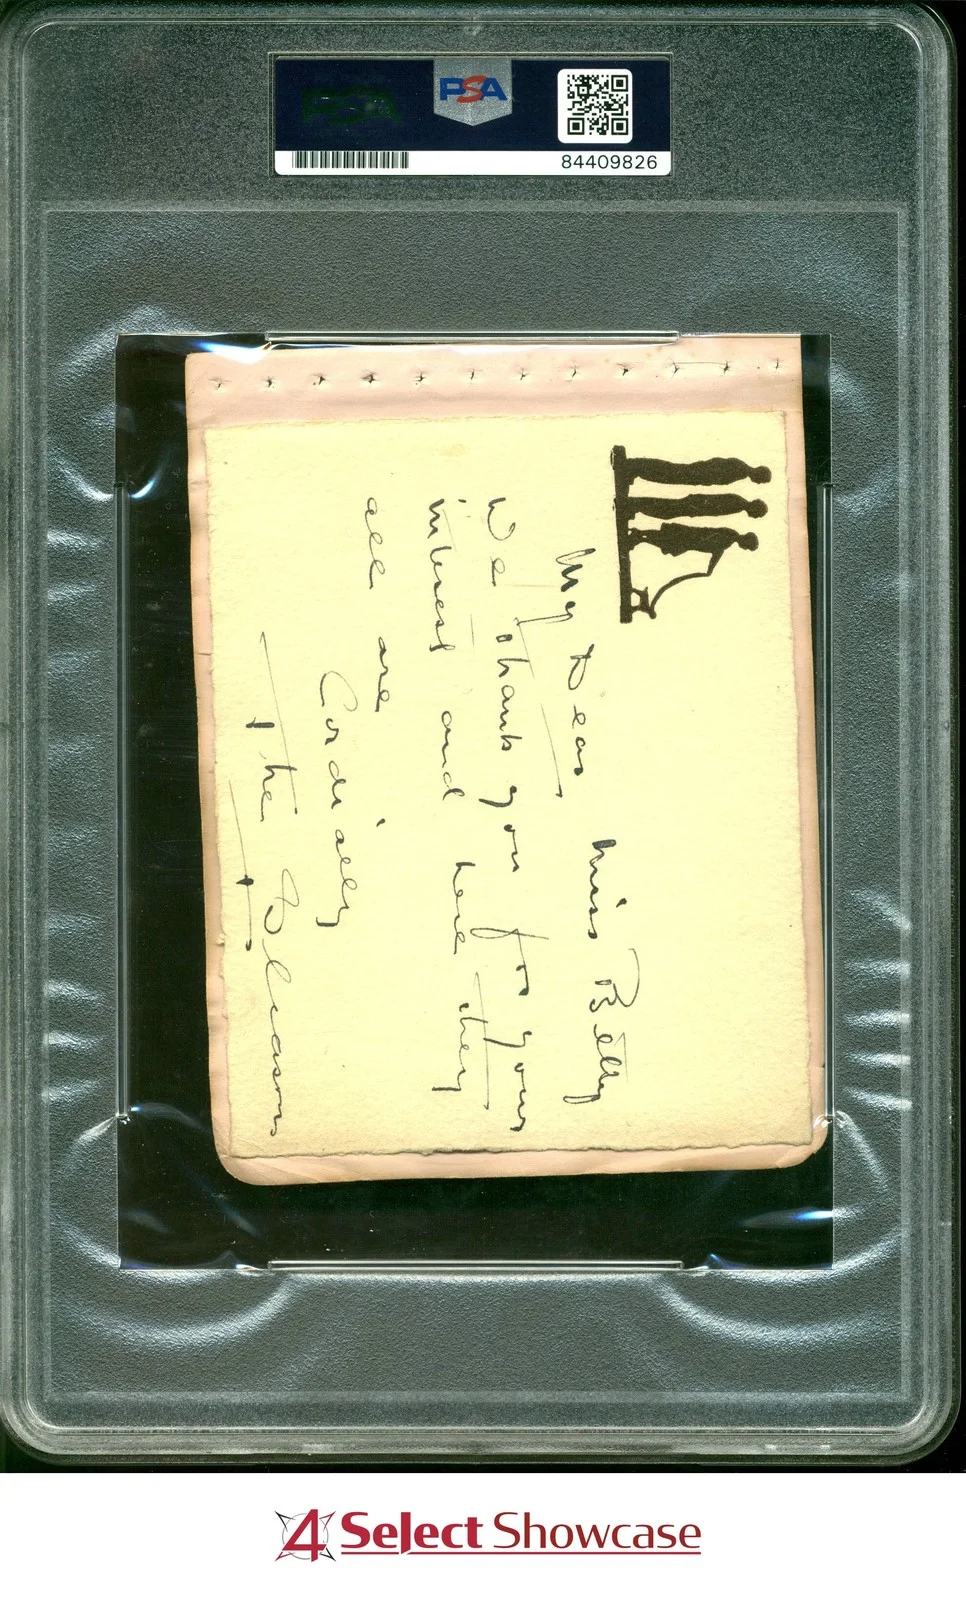 PSA
84409826
My Dear Miss Betty
We thank you for your
interest and here they
all are
Cordially
The Gleasons
4 Select Showcase